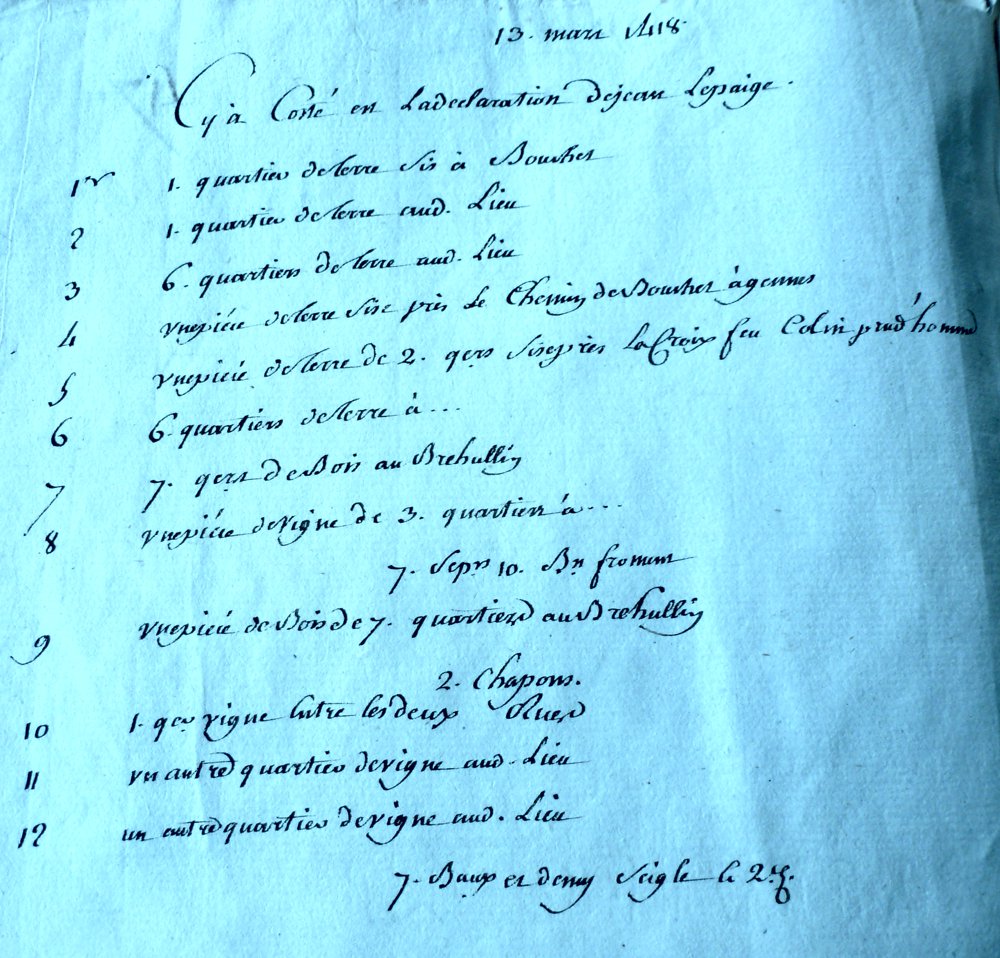 13. mars 1418.
Cy à Costé en Ladeclaration dejean Lepaige.
1er 1. quartier deterre sis à Bouchet
2 1. quartier deterre aud. Lieu
3 6. quartiers deterre aud. Lieu
4 vnepiéce deterre sise près Le Chemin deBouchet àgennes
5 vnepiéce deterre de 2. qers siseprès LaCroix feu Colin prud'homme
6 6. quartiers deterre à...
7 7. qers deBois auBrehullin
8 vnepiéce devigne de 3. quartiers à...
7. 10. Bx froment
9 vnepiéce deBoisde 7. quartiers auBrehullin
2. Chapons.
10 1. qer vigne Entre lesdeux Rues
11 vn autre quartier devigne aud. Lieu
12 un autrequartier devigne aud. Lieu
7. Baux et demy Seigle